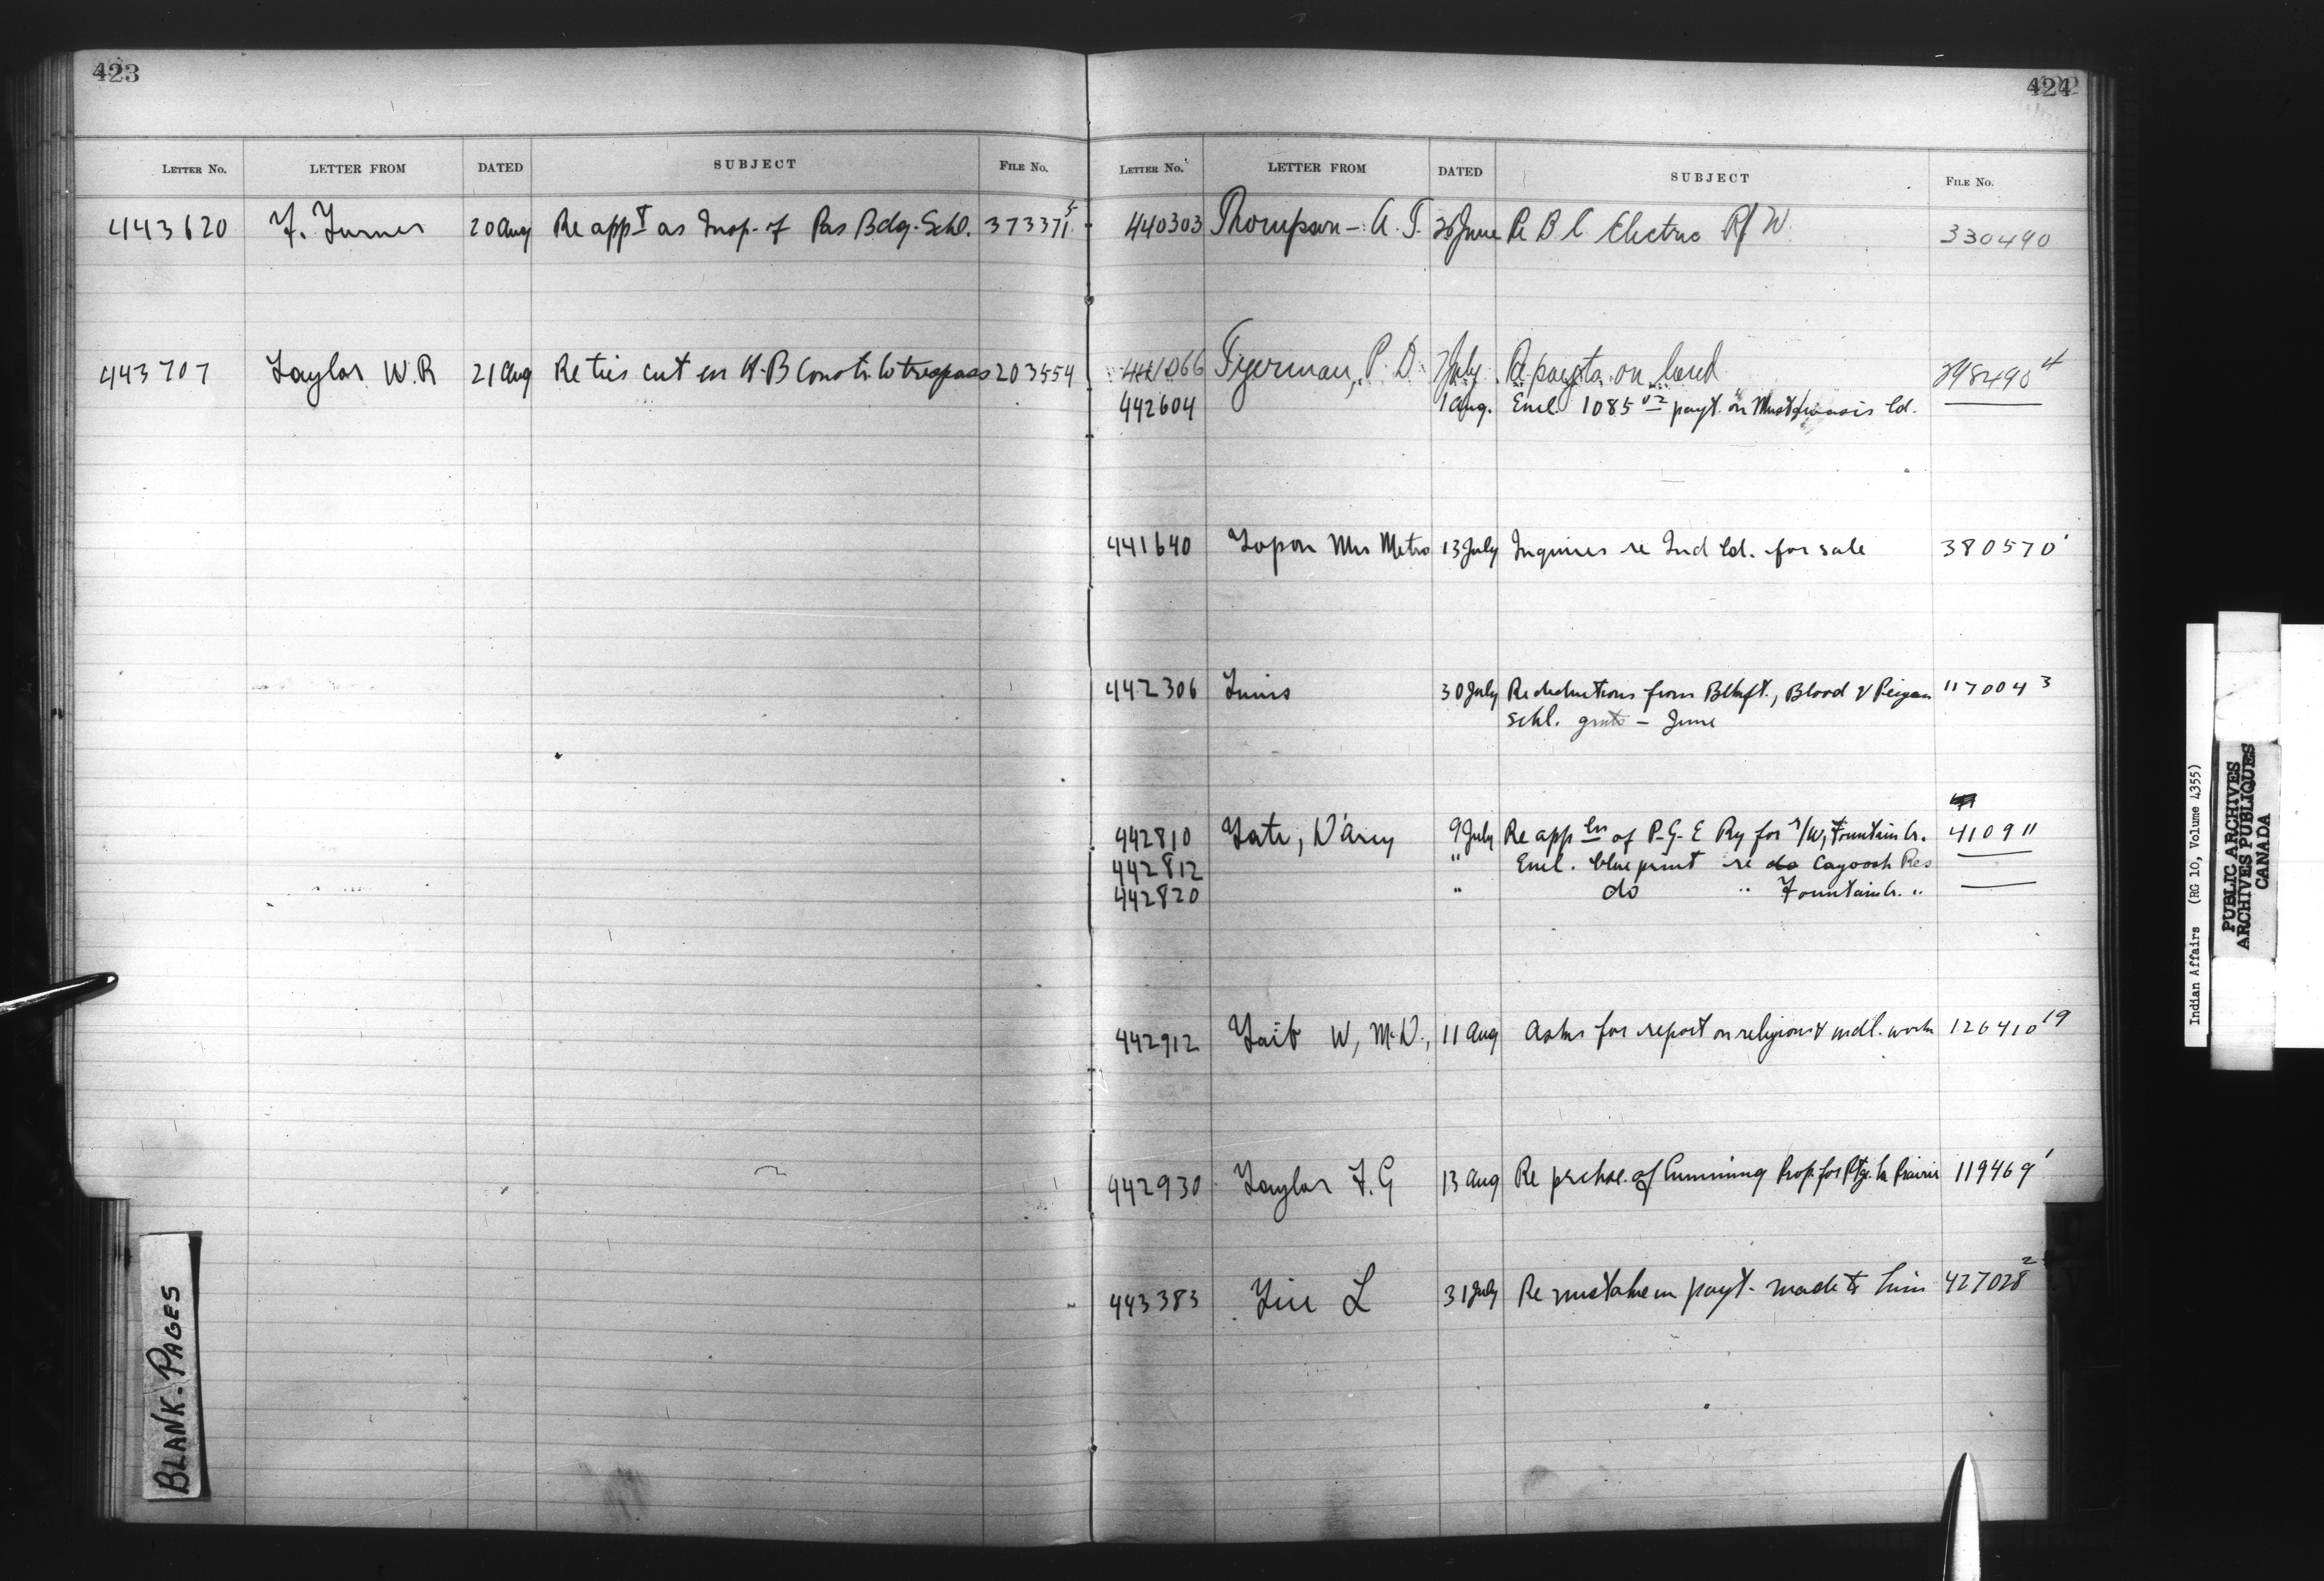 423
LETTER NO. LETTER FROM DATED SUBJECT FILE NO.
443620 F. Turner 20 Aug Re appt as Insp. of Pas Bdg. Schl. 373371 5
443707 Taylor W.R 21 Aug Re ties cut en H.B Constr. Co trespass 203554
424
LETTER NO. LETTER FROM DATED SUBJECT FILE NO.
440303 Thompson - A. T. 26 June Re B C Electric R/W 330490
441066 Tyerman, P. D. 7 July Re payts on land 398490 4
442604 1 Aug. Encl. 1085 02 payt. on ld.
441640 Topon Mrs Metro 13 July Inquires re Ind ld. for sale 380570 1
442306 30 July Re deductions from Blkft., Blood & Peigan 117004 3
schl. grnts - June
442810 Tate, D'Arcy 9 July Re appln of P-G-E Ry for r/w, Fountain Cr. 41091
442812 " Encl. blue print re do Cayoosh Res
442820 " do " Fountain Cr. "
442912 Tait W, M.D., 11 Aug Asks for report on religious & medl. work 126410 19
442930 Taylor F. G 13 Aug Re prchse. of Cumming Prop. for Ptge. la Prairie 119469 1
443383 L 31 July Re mistake in payt. made to him 427028 2
BLANK-PAGES
Indian Affairs (RG 10, Volume 4355)
PUBLIC ARCHIVES
ARCHIVES PUBLIQUES
CANADA